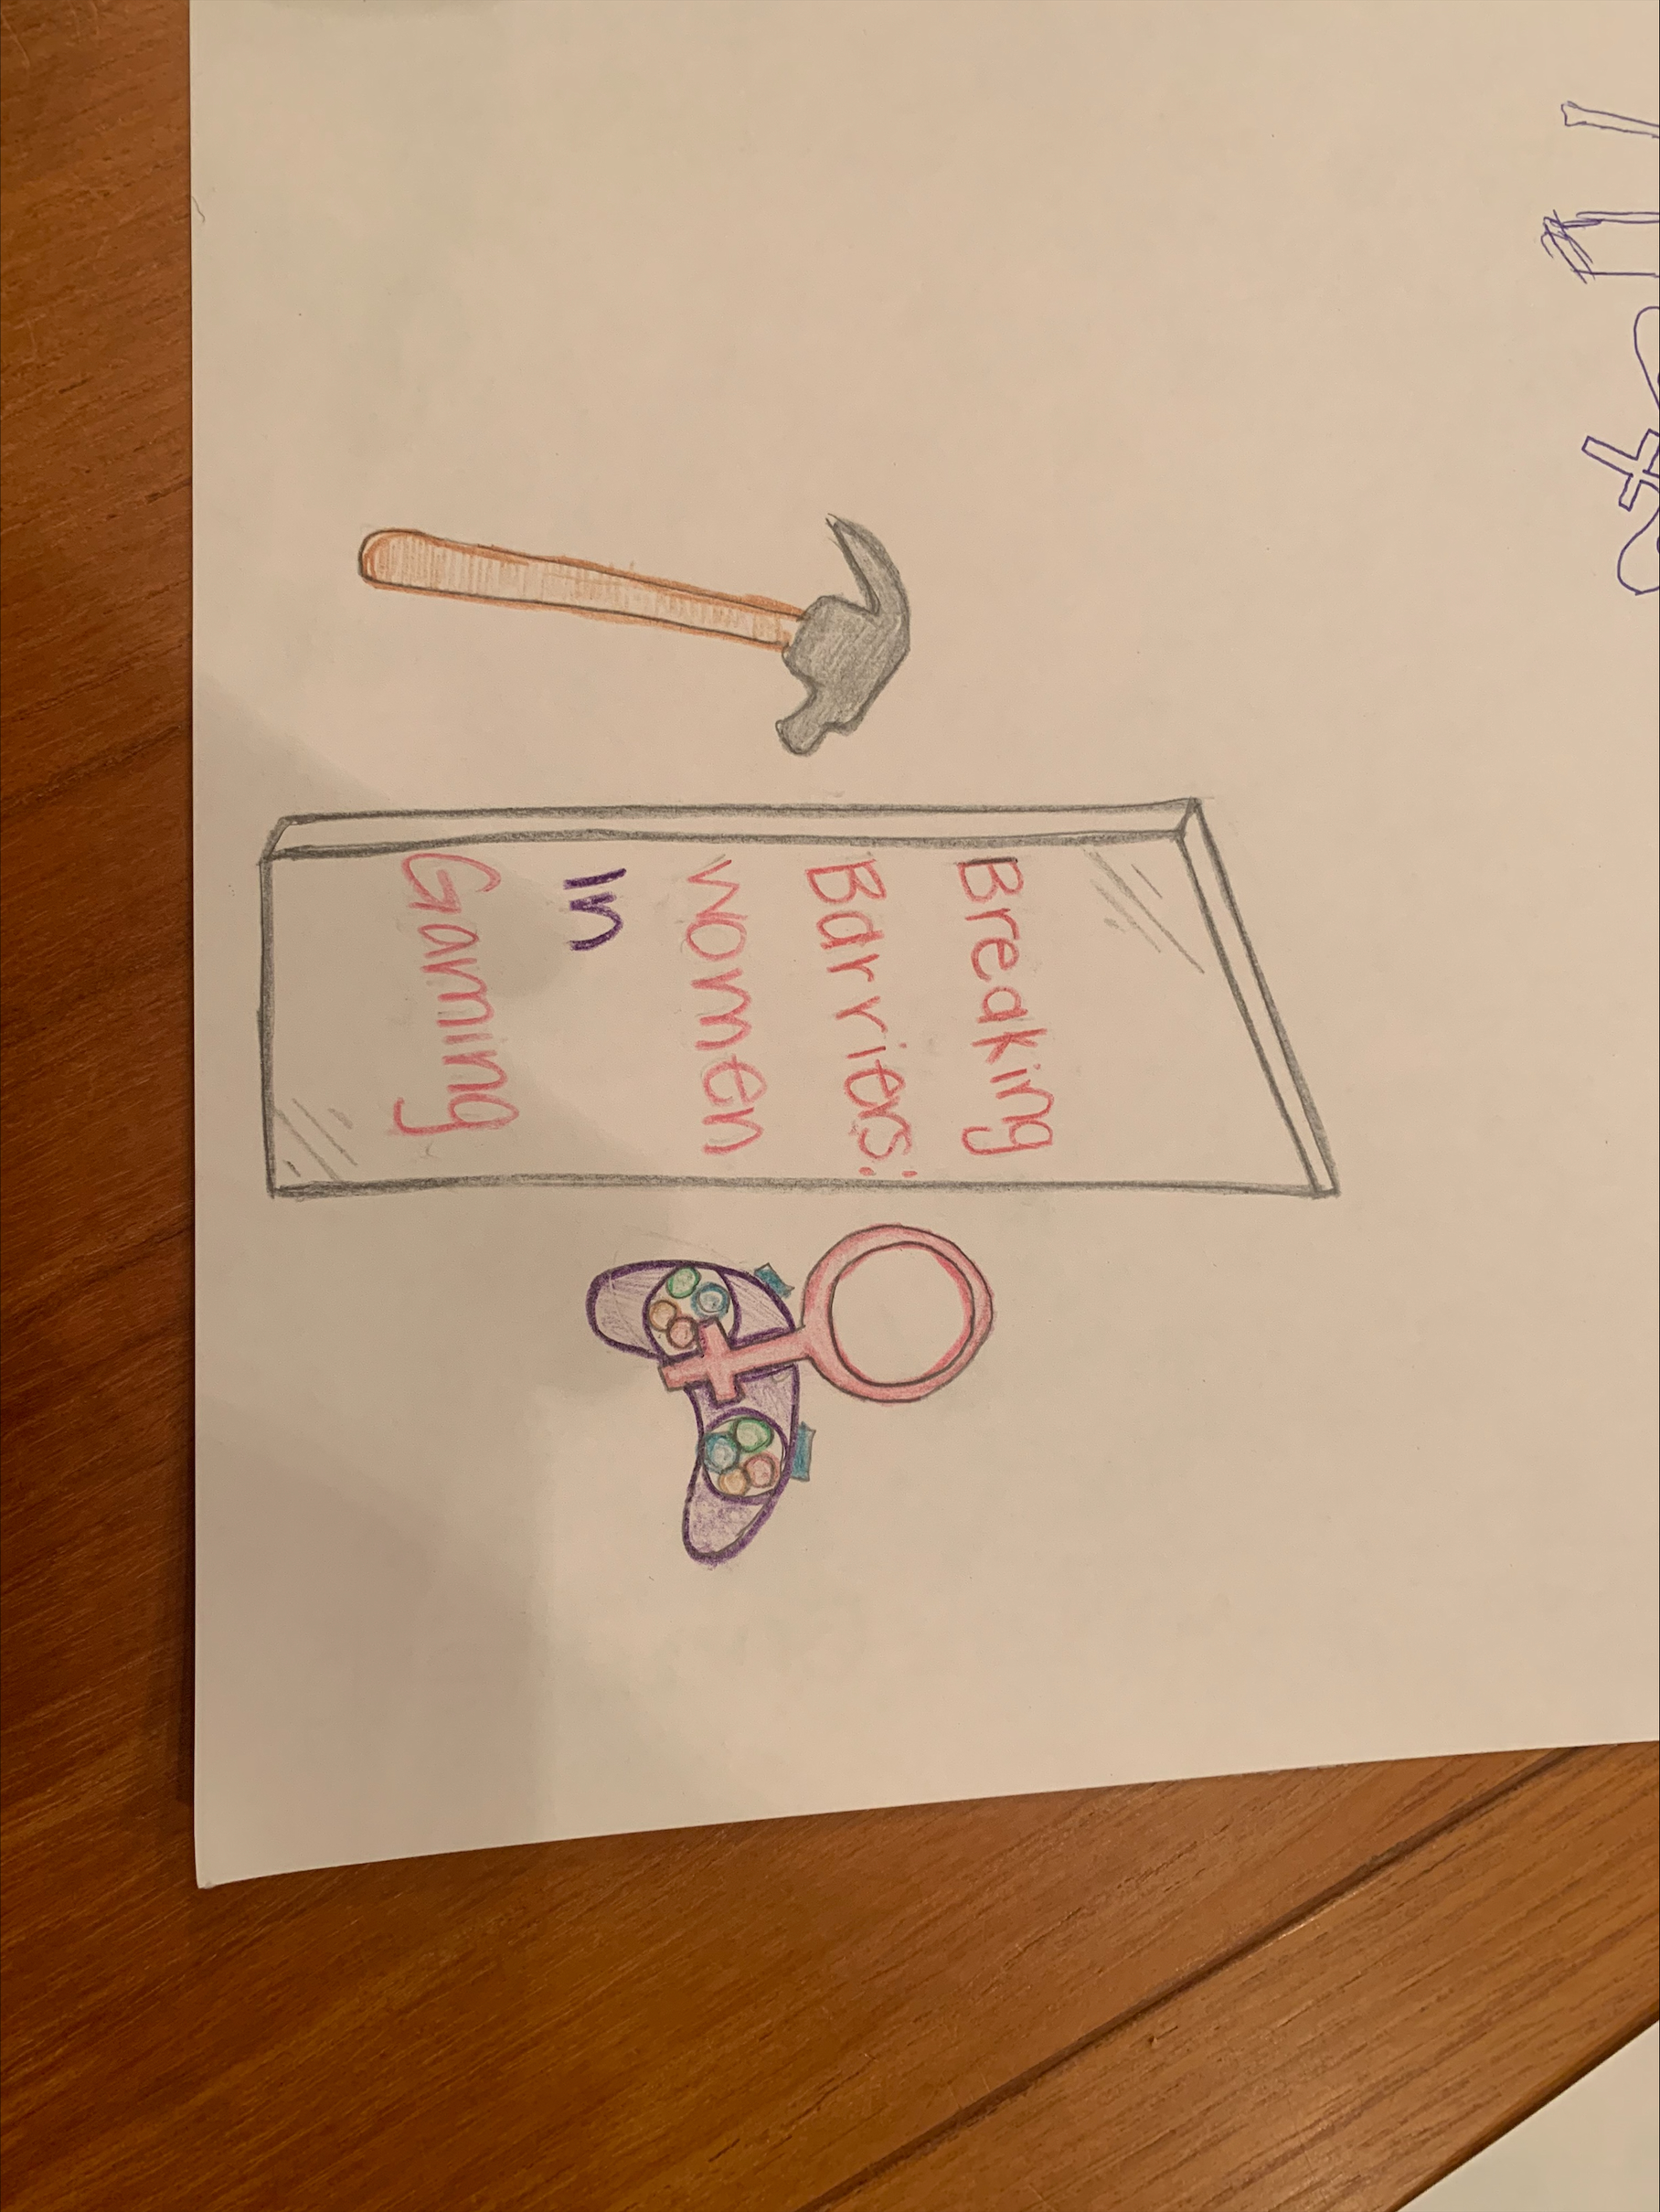 Breaking
Barriers:
women
in
Gaming